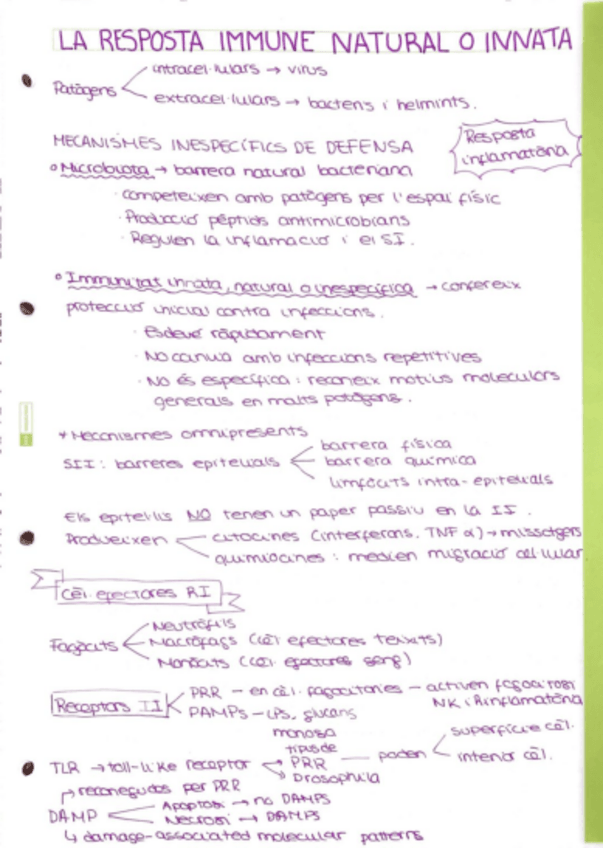 LA RESPOSTA IMMUNE NATURAL O INNATA
Patògens
intracel·lulars → virus
extracel·lulars → bacteris i helmints.
MECANISMES INESPECÍFICS DE DEFENSA
Resposta
inflamatòria
Microbiota → barrera natural bacteriana
· competeixen amb patògens per l'espai físic
· Producció pèptids antimicrobians
· Regulen la inflamació i el SI.
Immunitat innata, natural o inespecífica → confereix
protecció inicial contra infeccions.
· Esdevé ràpidament
· No canvia amb infeccions repetitives
· No és específica: reconeix motius moleculars
generals en molts patògens.
* Mecanismes omnipresents
SII: barreres epitelials
barrera física
barrera química
limfòcits intra-epitelials
Els epitelis NO tenen un paper passiu en la II.
Produeixen
citocines (interferons, TNF α) → missatgers
quimiocines: medien migració cel·lular
Cèl. efectores RI
Fagòcits
Neutròfils
Macròfags (cèl efectores teixits)
Monòcits (cèl. efectores sang)
Receptors II
PRR - en cèl. fagocitòries - activen fagocitosi
NK i R.inflamatòria
PAMPs - LPS, glucans
manosa
TLR → toll-like receptor
tipus de
PRR
Drosophila
poden
superfície cèl.
interior cèl.
reconeguts per PRR
DAMP
Apoptosi → no DAMPs
Necrosi → DAMPs
↳ damage-associated molecular patterns